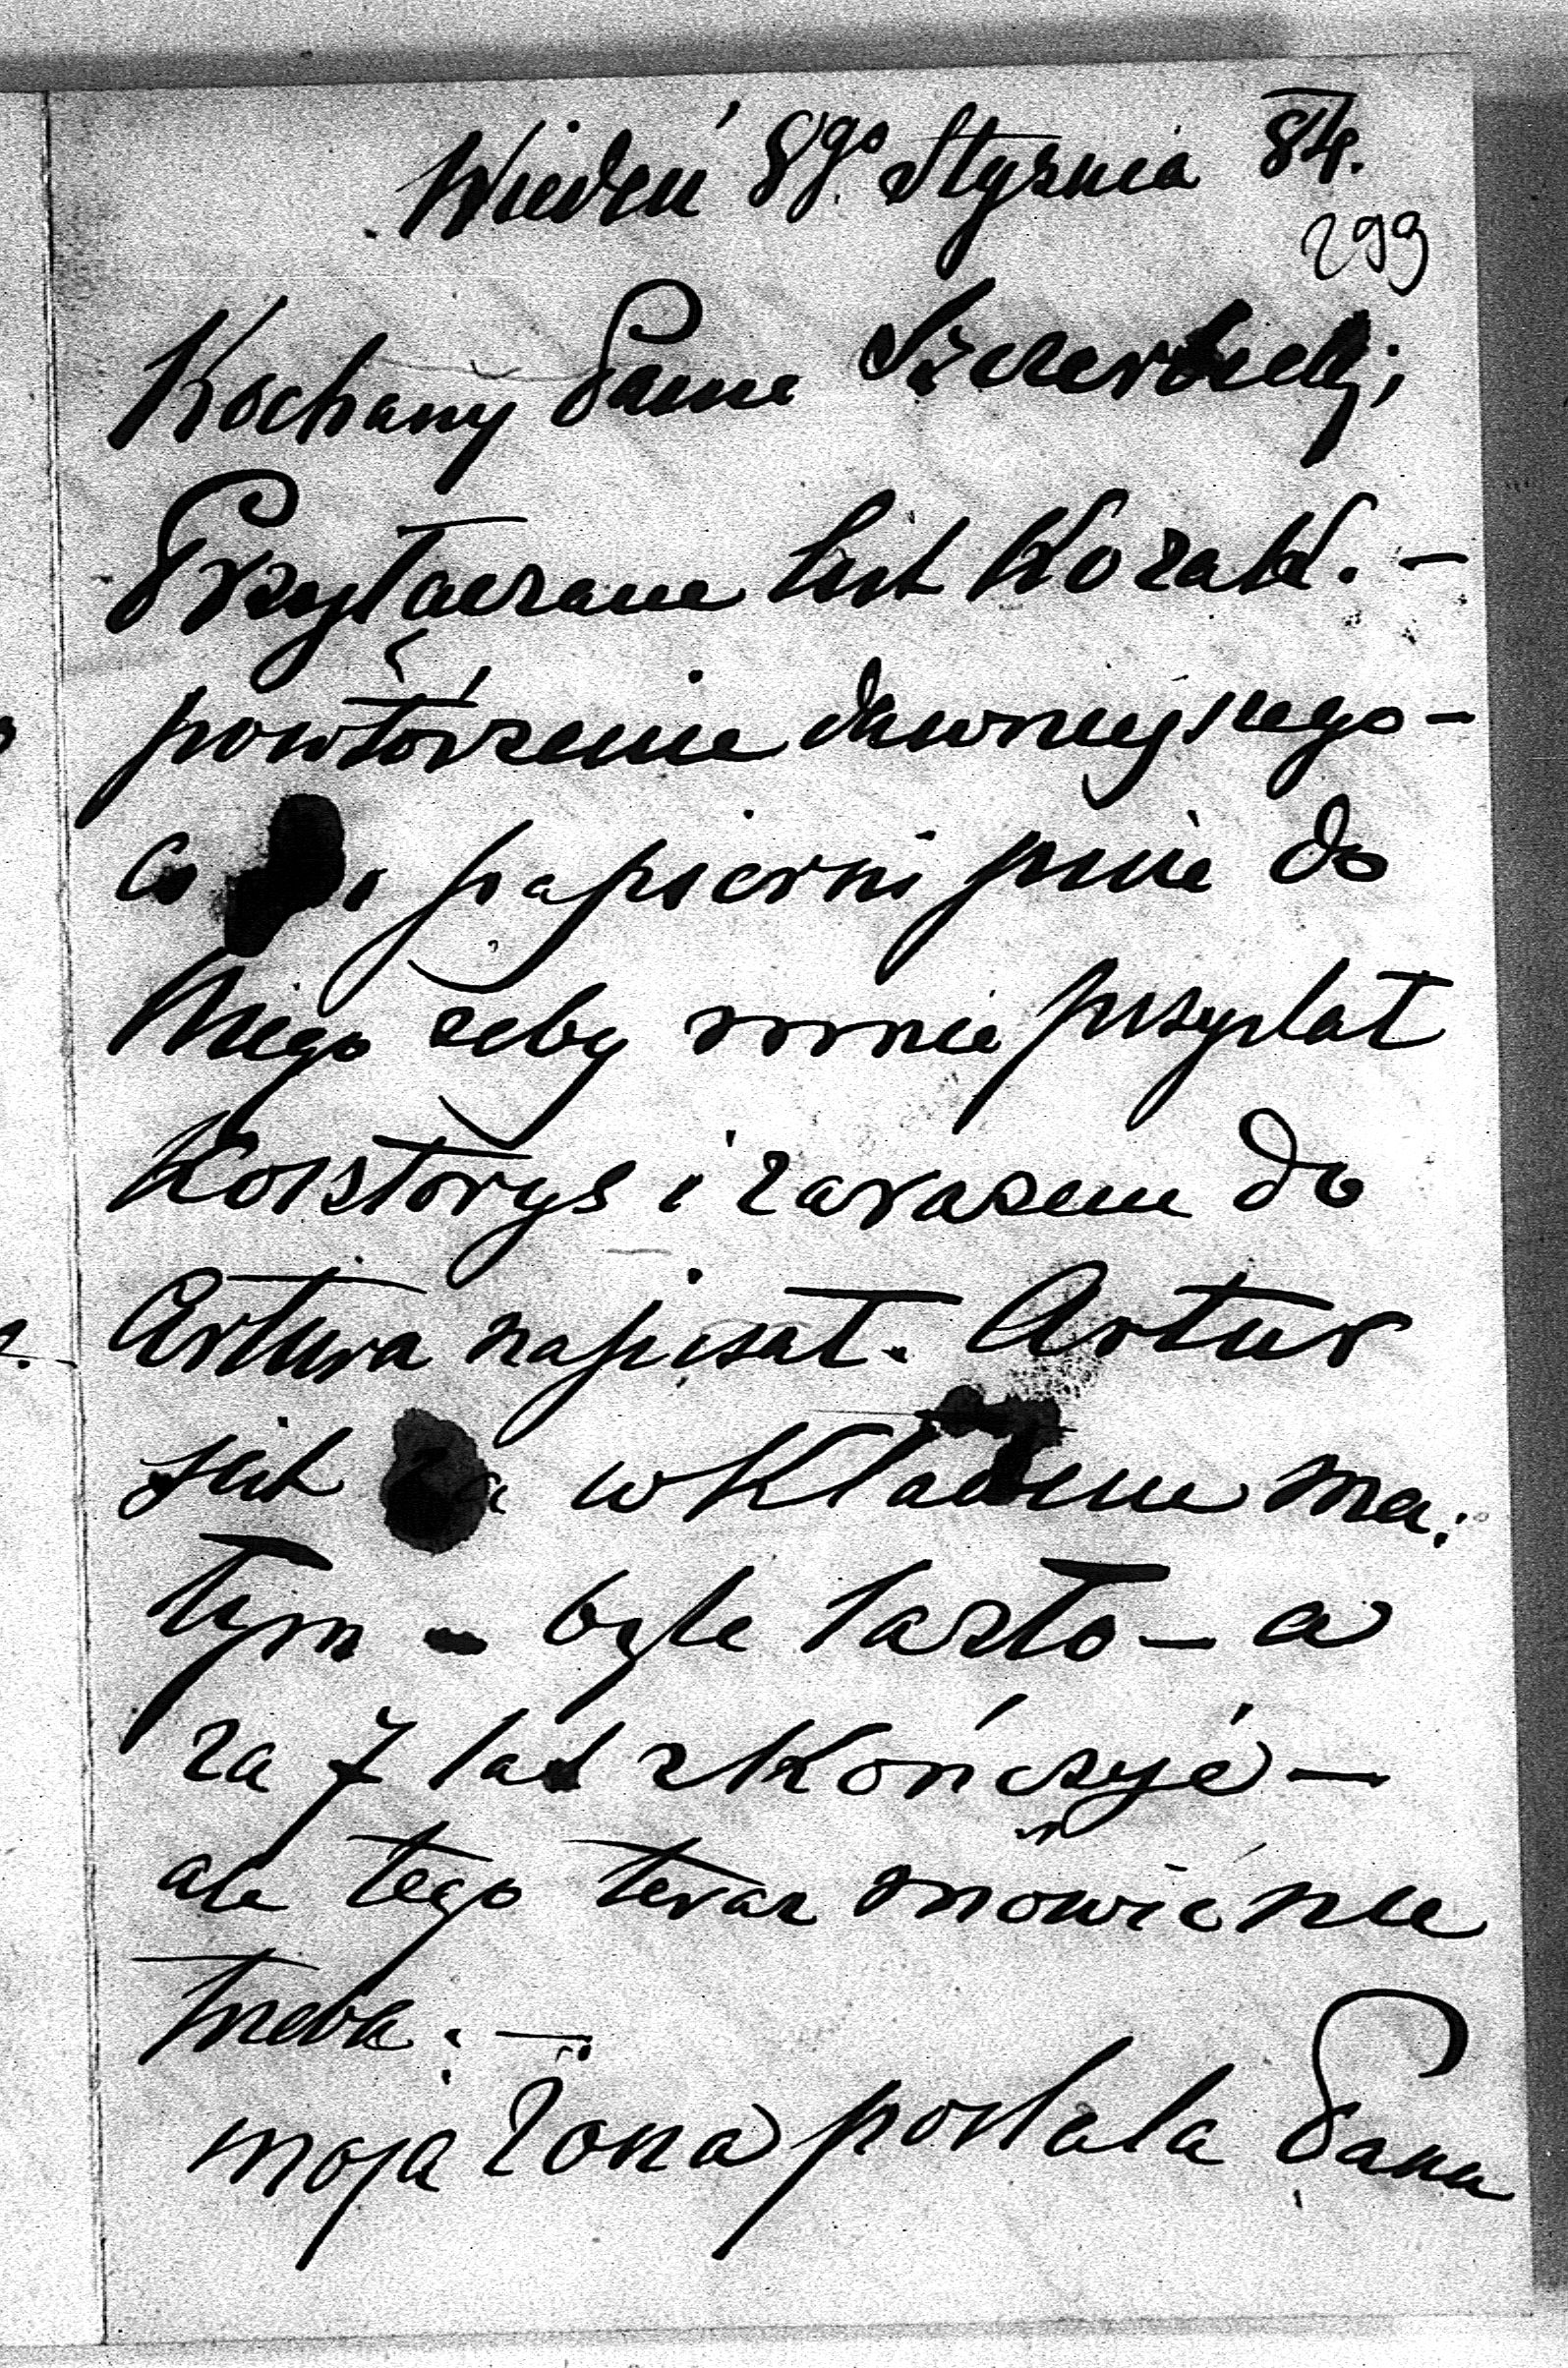 Wiedeń 8go Stycznia 84.
299
Kochany Panie
Przytaczam list Kozak. —
powtórzenie dawniejszego —
co do papierni pisze do
niego żeby mnie przysłał
Kosztorys i zarazem do
Artura napisał. Artur
jest za wkładem ma:
łym — byle łaszto — a
za 7 lat skończyć —
ale tego teraz mówić nie
trzeba. —
moja żona posłała Panu